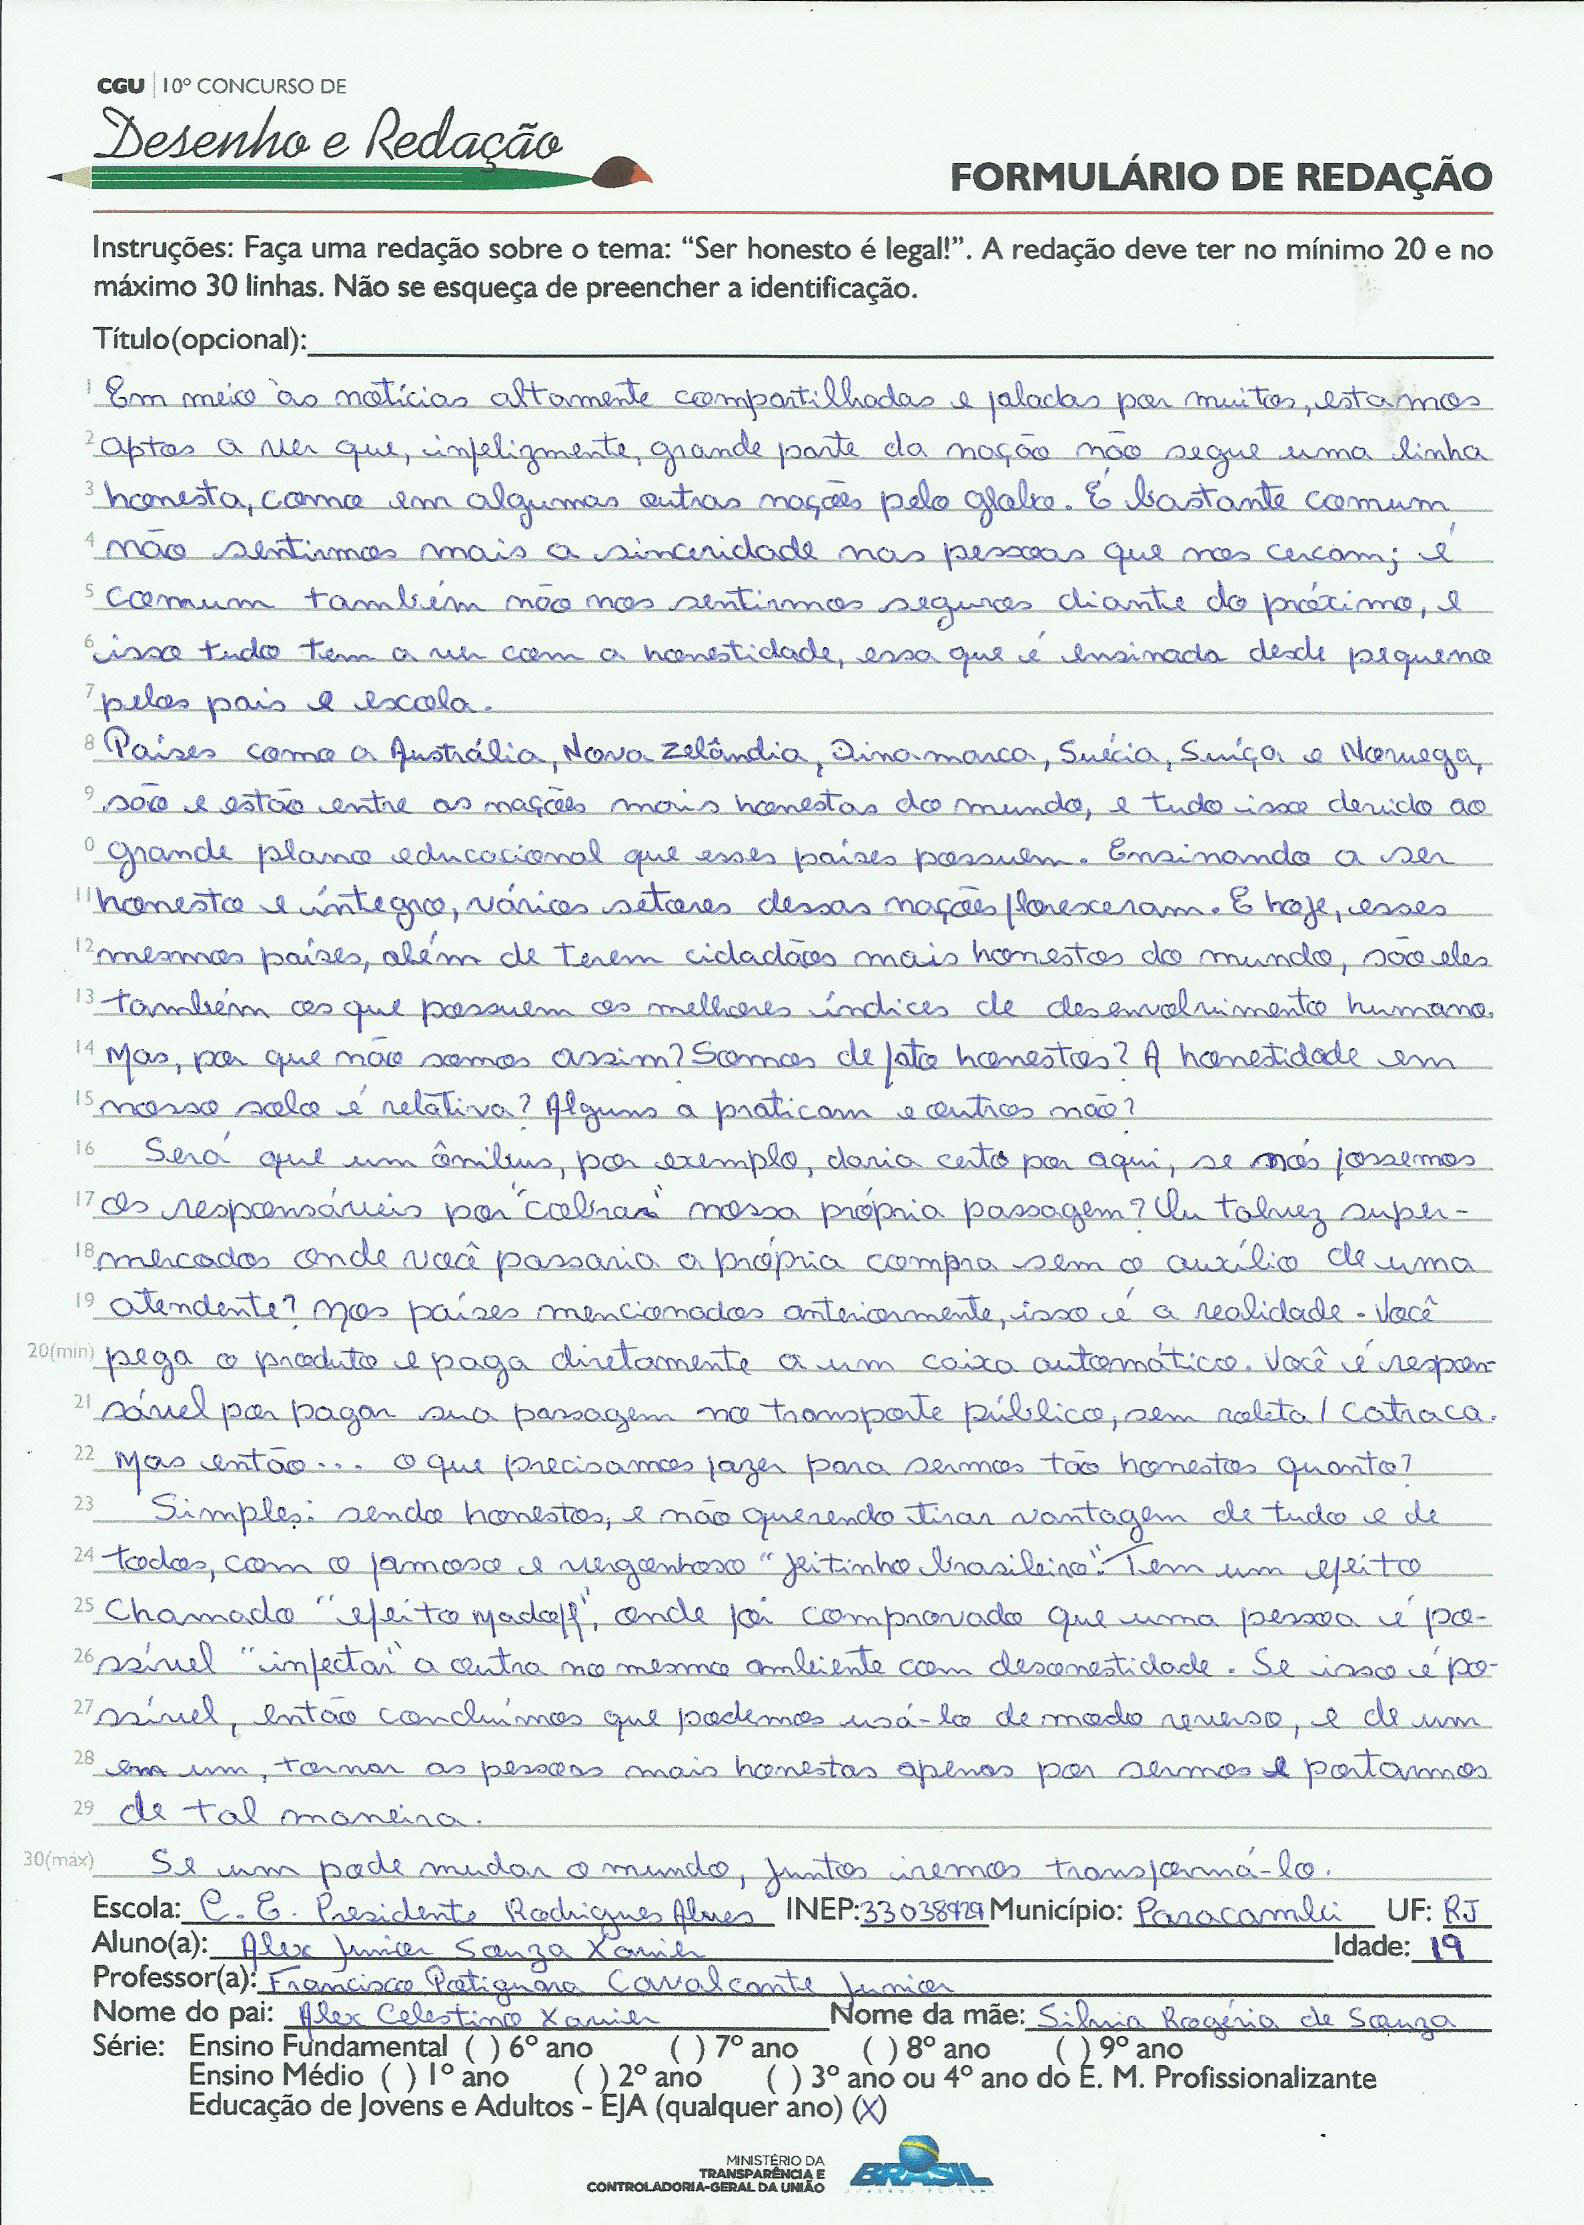 CGU | 10º CONCURSO DE
Desenho e Redação
FORMULÁRIO DE REDAÇÃO
Instruções: Faça uma redação sobre o tema: “Ser honesto é legal!”. A redação deve ter no mínimo 20 e no
máximo 30 linhas. Não se esqueça de preencher a identificação.
Título(opcional):
1 Em meio às notícias altamente compartilhadas e faladas por muitos, estamos
2 aptos a ver que, infelizmente, grande parte da nação não segue uma linha
3 honesta, como em algumas outras nações pelo globo. É bastante comum
4 não sentirmos mais a sinceridade nas pessoas que nos cercam; é
5 comum também não nos sentirmos seguros diante do próximo, e
6 isso tudo tem a ver com a honestidade, essa que é ensinada desde pequeno
7 pelos pais e escola.
8 Países como a Austrália, Nova Zelândia, Dinamarca, Suécia, Suíça e Noruega,
9 são e estão entre as nações mais honestas do mundo, e tudo isso devido ao
0 grande plano educacional que esses países possuem. Ensinando a ser
11 honesto e íntegro, vários setores dessas nações floresceram. E hoje, esses
12 mesmos países, além de terem cidadãos mais honestos do mundo, são eles
13 também os que possuem os melhores índices de desenvolvimento humano.
14 Mas, por que não somos assim? Somos de fato honestos? A honestidade em
15 nosso solo é relativa? Alguns a praticam e outros não?
16 Será que um ônibus, por exemplo, daria certo por aqui, se nós fossemos
17 os responsáveis por "cobrar" nossa própria passagem? Ou talvez super-
18 mercados onde você passaria a própria compra sem o auxílio de uma
19 atendente? Nos países mencionados anteriormente, isso é a realidade. Você
20(min) pega o produto e paga diretamente a um caixa automático. Você é respon-
21 sável por pagar sua passagem no transporte público, sem roleta / catraca.
22 Mas então... o que precisamos fazer para sermos tão honestos quanto?
23 Simples: sendo honestos, e não querendo tirar vantagem de tudo e de
24 todos, com o famoso e vergonhoso "jeitinho brasileiro". Tem um efeito
25 chamado "efeito Madoff", onde foi comprovado que uma pessoa é po-
26 ssível "infectar" a outra no mesmo ambiente com desonestidade. Se isso é po-
27 ssível, então concluímos que podemos usá-lo de modo reverso, e de um
28 em um, tornar as pessoas mais honestas apenas por sermos e portarmos
29 de tal maneira.
30(máx) Se um pode mudar o mundo, juntos iremos transformá-lo.
Escola: C. E. Presidente Rodrigues Alves INEP: 33038929 Município: Paracambi UF: RJ
Aluno(a): Alex Junior Souza Xavier Idade: 19
Professor(a): Francisco Potiguara Cavalcante Junior
Nome do pai: Alex Celestino Xavier Nome da mãe: Silvia Rogéria de Souza
Série: Ensino Fundamental ( ) 6º ano ( ) 7º ano ( ) 8º ano ( ) 9º ano
Ensino Médio ( ) 1º ano ( ) 2º ano ( ) 3º ano ou 4º ano do E. M. Profissionalizante
Educação de Jovens e Adultos - EJA (qualquer ano) (X)
MINISTÉRIO DA
TRANSPARÊNCIA E
CONTROLADORIA-GERAL DA UNIÃO
BRASIL